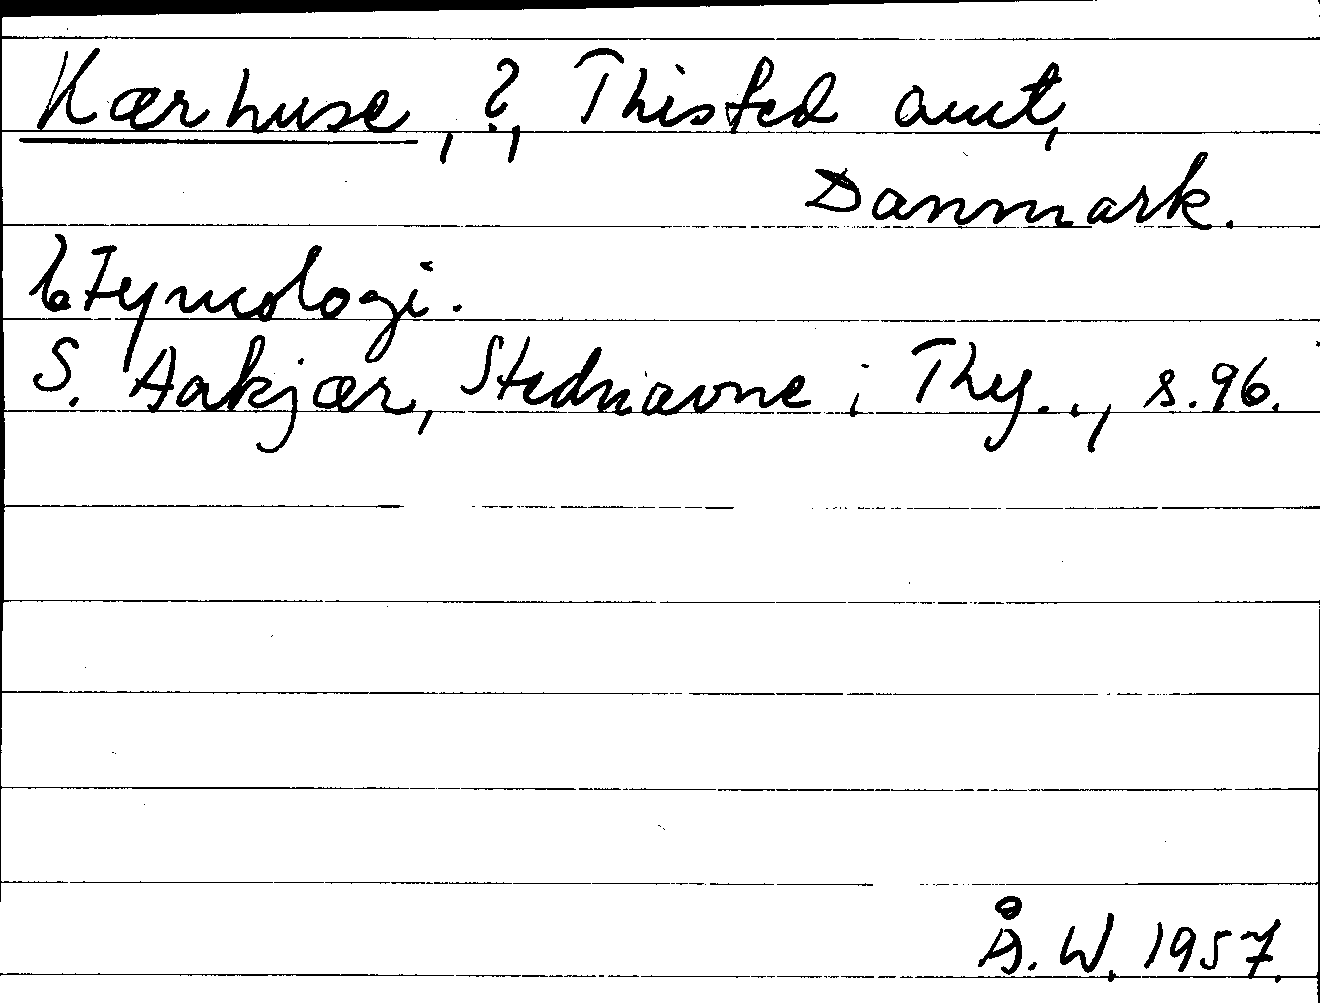 Kærhuse, ?, Thisted amt,
Danmark.
Etymologi.
S. Aakjær, Stednavne i Thy.., s. 96.
Å. W. 1957.